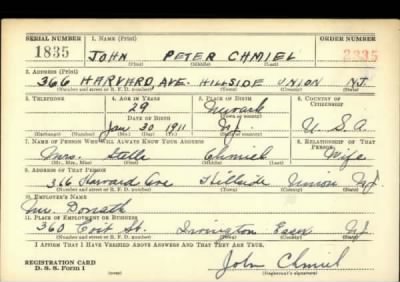 SERIAL NUMBER 1. NAME (Print) ORDER NUMBER
1835 JOHN PETER CHMIEL 2335
(First) (Middle) (Last)
2. ADDRESS (Print)
366 HARVARD AVE. HILLSIDE UNION NJ.
(Number and street or R. F. D. number) (Town) (County) (State)
3. TELEPHONE 4. AGE IN YEARS 5. PLACE OF BIRTH 6. COUNTRY OF CITIZENSHIP
29 Newark
DATE OF BIRTH (Town or county)
Jan 30 1911 NJ U.S.A.
(Exchange) (Number) (Mo.) (Day) (Yr.) (State or country)
7. NAME OF PERSON WHO WILL ALWAYS KNOW YOUR ADDRESS 8. RELATIONSHIP OF THAT PERSON
Mrs. Stella Chmiel Wife
(Mr., Mrs., Miss) (First) (Middle) (Last)
9. ADDRESS OF THAT PERSON
366 Harvard Ave Hillside Union NJ
(Number and street or R. F. D. number) (Town) (County) (State)
10. EMPLOYER'S NAME
Mr. Donath
11. PLACE OF EMPLOYMENT OR BUSINESS
360 St. Irvington Essex NJ
(Number and street or R. F. D. number) (Town) (County) (State)
I AFFIRM THAT I HAVE VERIFIED ABOVE ANSWERS AND THAT THEY ARE TRUE.
REGISTRATION CARD
D. S. S. Form 1 (over) John Chmiel
(Registrant's signature)